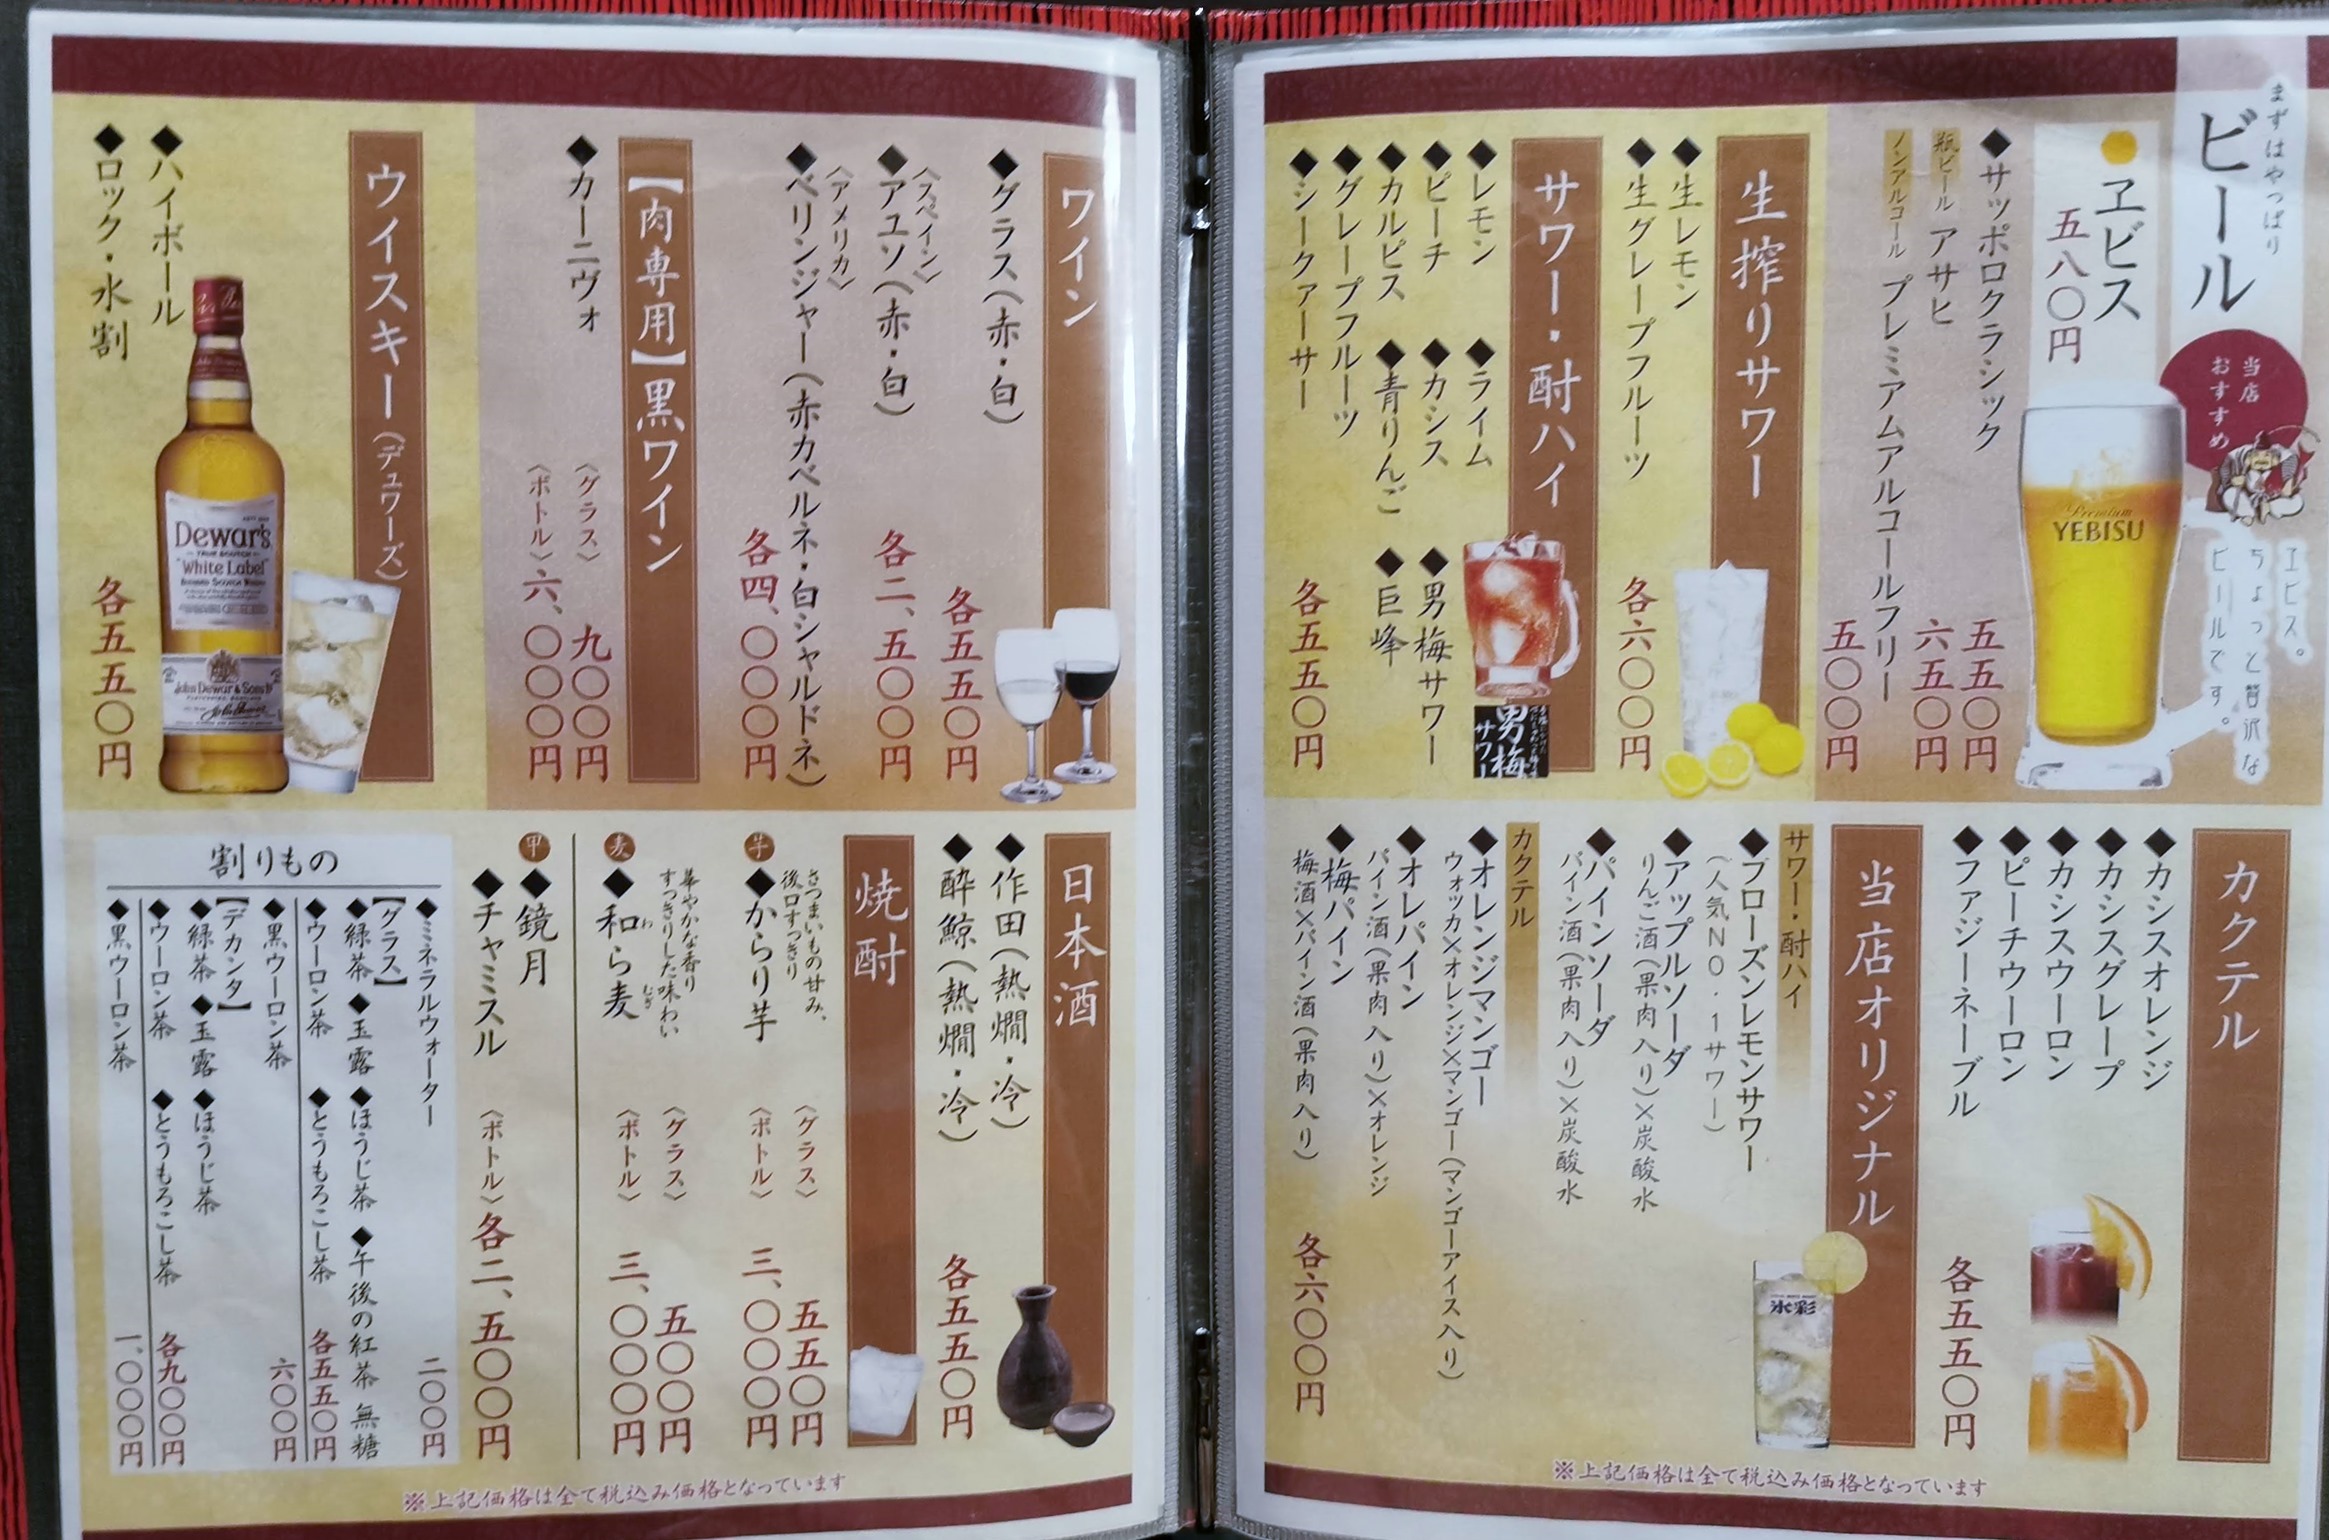 まずはやっぱり
ビール
当店
おすすめ
エビス。
ちょっと贅沢な
ビールです。
ヱビス
五八〇円
Premium
YEBISU
◆サッポロクラシック 五五〇円
瓶ビール アサヒ 六五〇円
ノンアルコール プレミアムアルコールフリー 五〇〇円
生搾りサワー
◆生レモン
◆生グレープフルーツ
各六〇〇円
サワー・酎ハイ
男梅
サワー
◆レモン ◆ライム
◆ピーチ ◆カシス ◆男梅サワー
◆カルピス ◆青りんご ◆巨峰
◆グレープフルーツ
◆シークァーサー
各五五〇円
カクテル
◆カシスオレンジ
◆カシスグレープ
◆カシスウーロン
◆ピーチウーロン
◆ファジーネーブル
各五五〇円
当店オリジナル
氷彩
サワー・酎ハイ
◆フローズンレモンサワー
(人気NO.1サワー)
◆アップルソーダ
りんご酒(果肉入り)×炭酸水
◆パインソーダ
パイン酒(果肉入り)×炭酸水
カクテル
◆オレンジマンゴー
ウォッカ×オレンジ×マンゴー(マンゴーアイス入り)
◆オレパイン
パイン酒(果肉入り)×オレンジ
◆梅パイン
梅酒×パイン酒(果肉入り)
各六〇〇円
※上記価格は全て税込み価格となっています
ワイン
◆グラス(赤・白)
各五五〇円
〈スペイン〉
◆アユソ(赤・白)
各二、五〇〇円
〈アメリカ〉
◆ベリンジャー(赤カベルネ・白シャルドネ)
各四、〇〇〇円
【肉専用】黒ワイン
◆カーニヴォ
〈グラス〉 九〇〇円
〈ボトル〉 六、〇〇〇円
ウイスキー(デュワーズ)
Dewar's
TRUE SCOTCH
"White Label"
BLENDED SCOTCH WHISKY
John Dewar & Sons
◆ハイボール
◆ロック・水割
各五五〇円
日本酒
◆作田(熱燗・冷)
◆酔鯨(熱燗・冷)
各五五〇円
焼酎
さつまいもの甘み、
後口すっきり
芋
◆からり芋
〈グラス〉 五五〇円
〈ボトル〉 三、〇〇〇円
華やかな香り
すっきりした味わい
麦
◆和ら麦
わ むぎ
〈グラス〉 五〇〇円
〈ボトル〉 三、〇〇〇円
甲
◆鏡月
◆チャミスル
〈ボトル〉 各二、五〇〇円
割りもの
◆ミネラルウォーター 二〇〇円
【グラス】
◆緑茶 ◆玉露 ◆ほうじ茶 ◆午後の紅茶 無糖
◆ウーロン茶 ◆とうもろこし茶 各五五〇円
◆黒ウーロン茶 六〇〇円
【デカンタ】
◆緑茶 ◆玉露 ◆ほうじ茶
◆ウーロン茶 ◆とうもろこし茶 各九〇〇円
◆黒ウーロン茶 一、〇〇〇円
※上記価格は全て税込み価格となっています